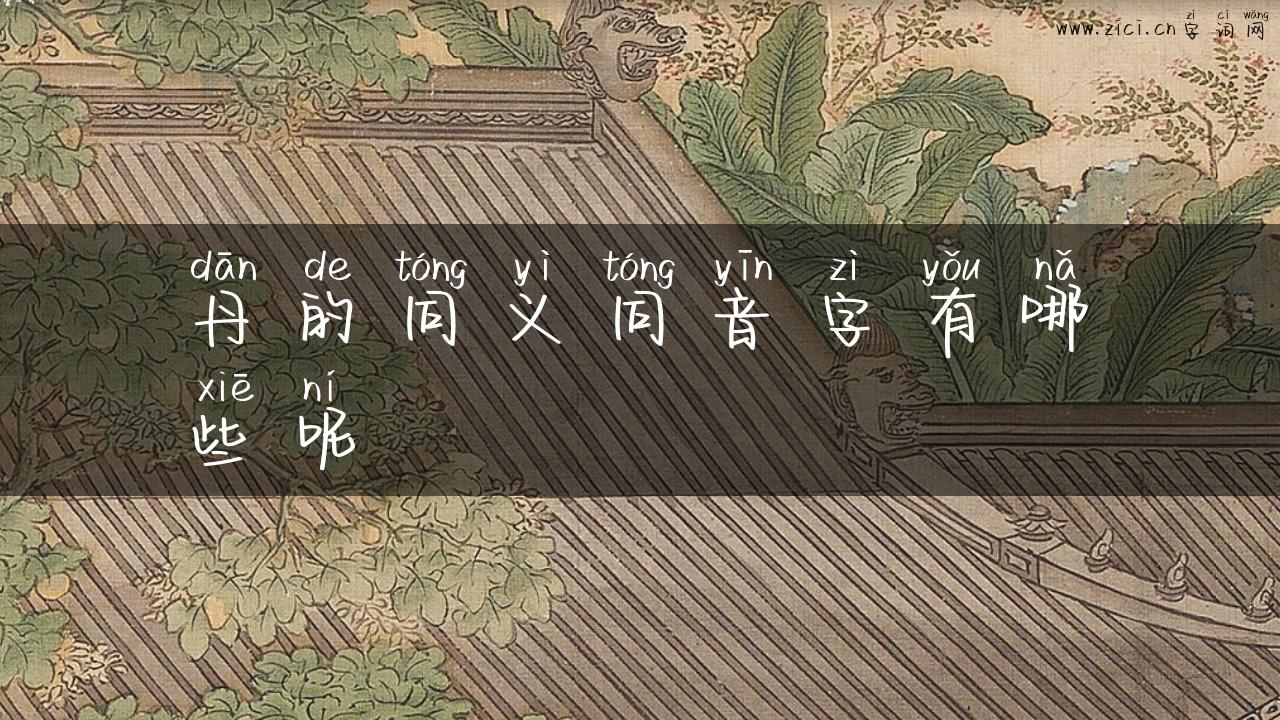 zì cí wǎng
www.zici.cn 字词网
dān de tóng yì tóng yīn zì yǒu nǎ
丹的同义同音字有哪
xiē ní
些呢